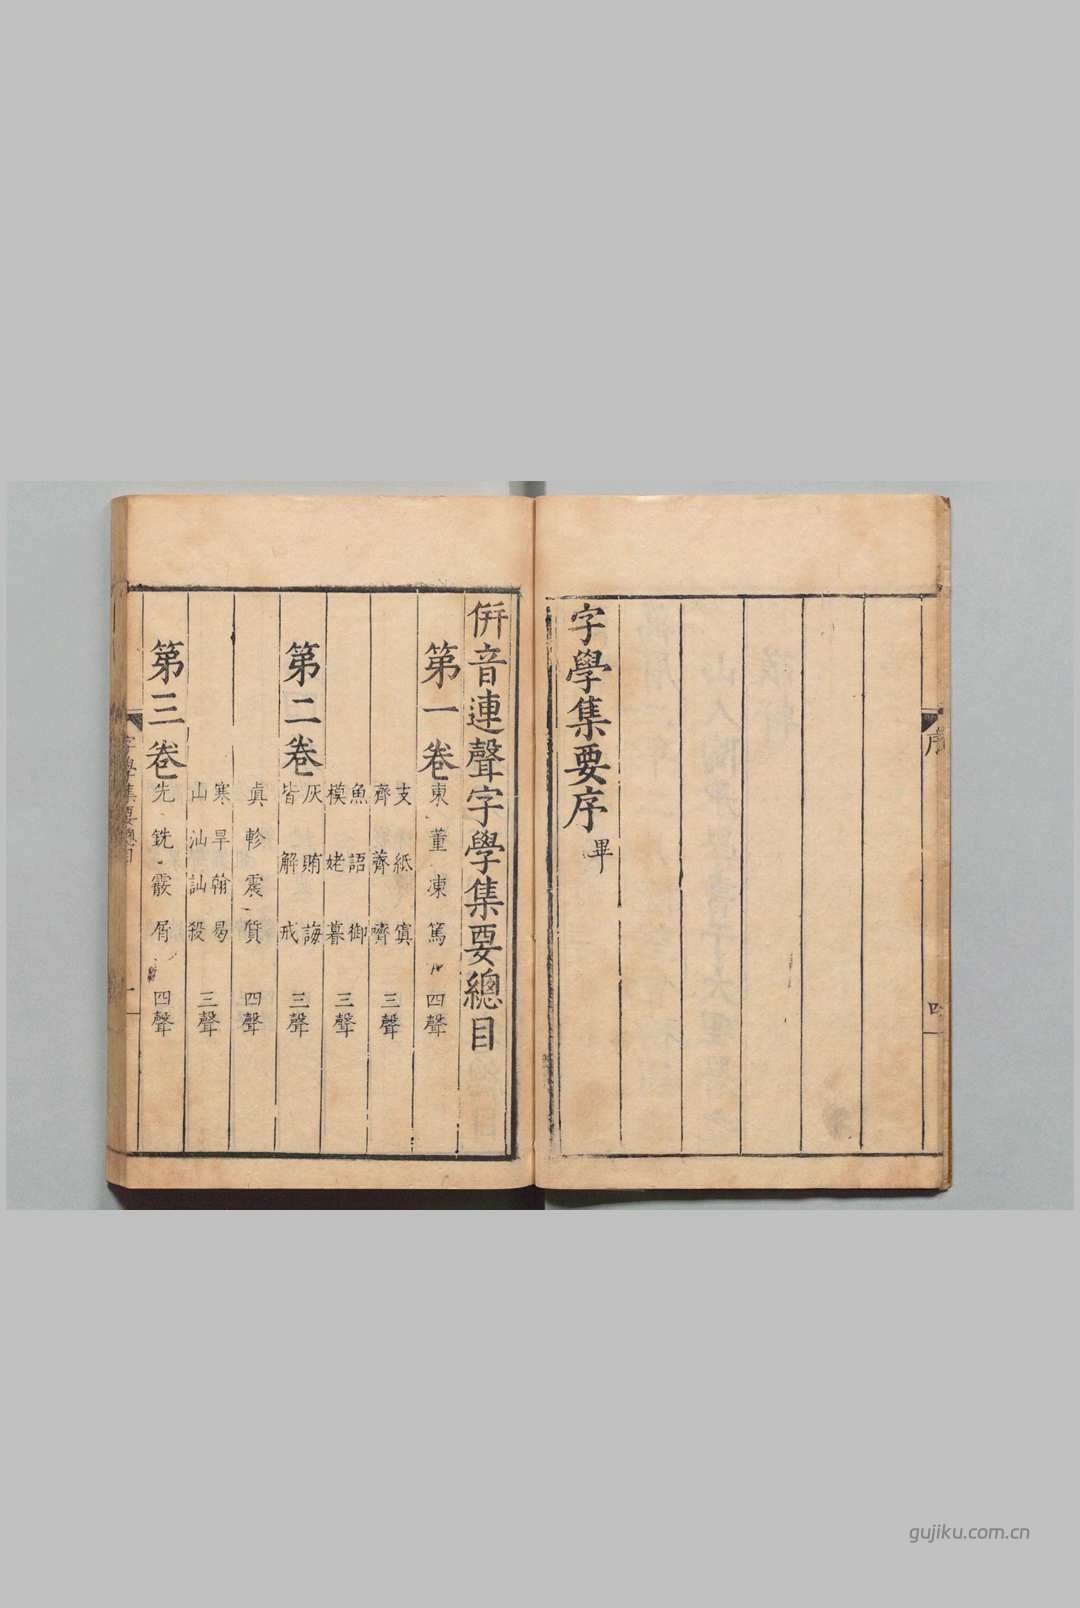 字學集要序畢
序
四
併音連聲字學集要總目
第一卷
東 董 凍 篤 四聲
支 紙 寘
齊 薺 齊 三聲
魚 語 御
模 姥 暮 三聲
第二卷
灰 賄 誨
皆 解 戒 三聲
眞 軫 震 質 四聲
寒 旱 翰 曷
山 汕 訕 殺 三聲
第三卷
先 銑 霰 屑 四聲
字學集要總目
一
gujiku.com.cn